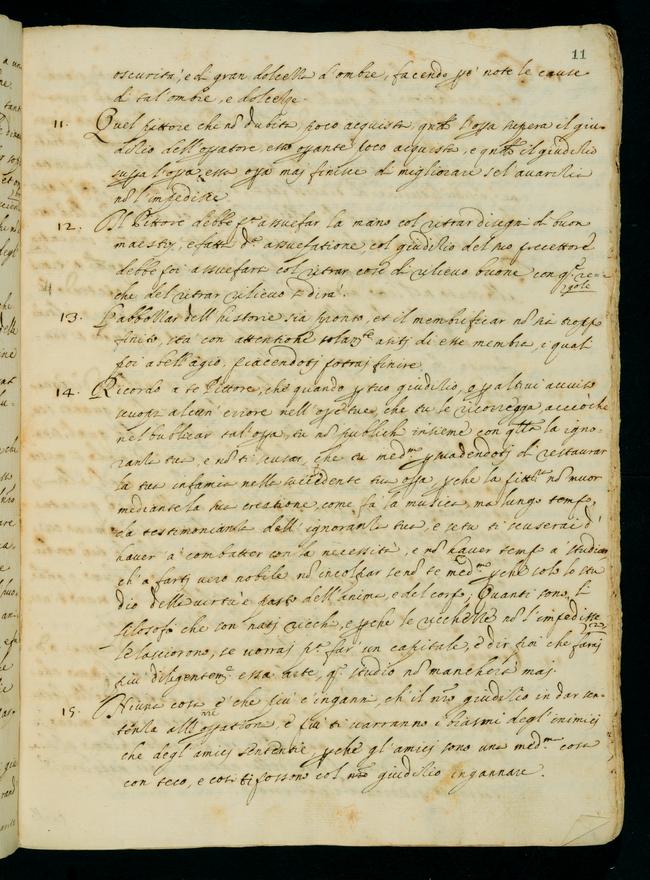 11
oscurità, e di gran dolcezza d'ombre, facendo p.ò note le cause
di tal ombre, e dolcezze.
11. Quel pittore che nõ dubita, poco acquista, qñdo l'opa supera il giu-
ditio dell'opatore, esso opante poco acquista, e qñdo il giuditio
supa l'opa, essa opa maj finisce di migliorare se l'avaritia
nõ l'impedisce
12. Il Pittore debbe p.a assuefar la mano col ritrar disegni di buon
maestrj, e fatta d.a assuefatione, col giuditio del suo precettore
debbe poi assuefarsi col ritrar cose di rilievo buone con q.e re-
gole
che del ritrar rilievo si dirà.
13. L'abbozzar dell'historie sia pronto, et il membrificar nõ sia tropp
finito, sta con attentione solam.te a i sitj di esse membra, i quali
poi a bell'agio, piacendotj potraj finire.
14. Ricordo a te Pittore, che quando p tuo giuditio, o p altrui avviso
scuopri alcun' errore nell'ope tue, che tu le ricorregga, acciò che
nel publicar tal'opa, tu nõ publichi insieme con qlla la igno-
ranza tua, e nõ ti scusar, che te med.mo psuadendotj di restaurar
la tua infamia nella succedente tua opa, pche la pittura nõ muor
mediante la sua creatione, come fa la musica, ma lungo tempo
da testimonianza dell'ignoranza tua e se tu ti scuserai d'
haver a' combatter con la necessita, e nõ haver tempo a studiar
ch'a fartj vero nobile nõ incolpar senõ te med.mo pche solo lo stu
dio delle virtù è pasto dell'anima, e del corpo; Quanti sono li
filosofi che son natj ricchi, e pche le ricchezze nõ l'impedisse
ro
le lasciorono, se vorraj p.te far un capitale, e dir poi che faraj
più diligentem.te essa arte, q.o studio nõ mancherà maj.
15. Niuna cosa è che più c'inganni, ch'il nr̃o giuditio in dar sen-
tenza alla nr̃a opatione, e più ti varranno i biasmi degl'inimicj
che degl'amicj sententie, pche gl'amicj sono una med.ma cosa
con teco, e cosi ti possono col nr̃o giuditio ingannare.